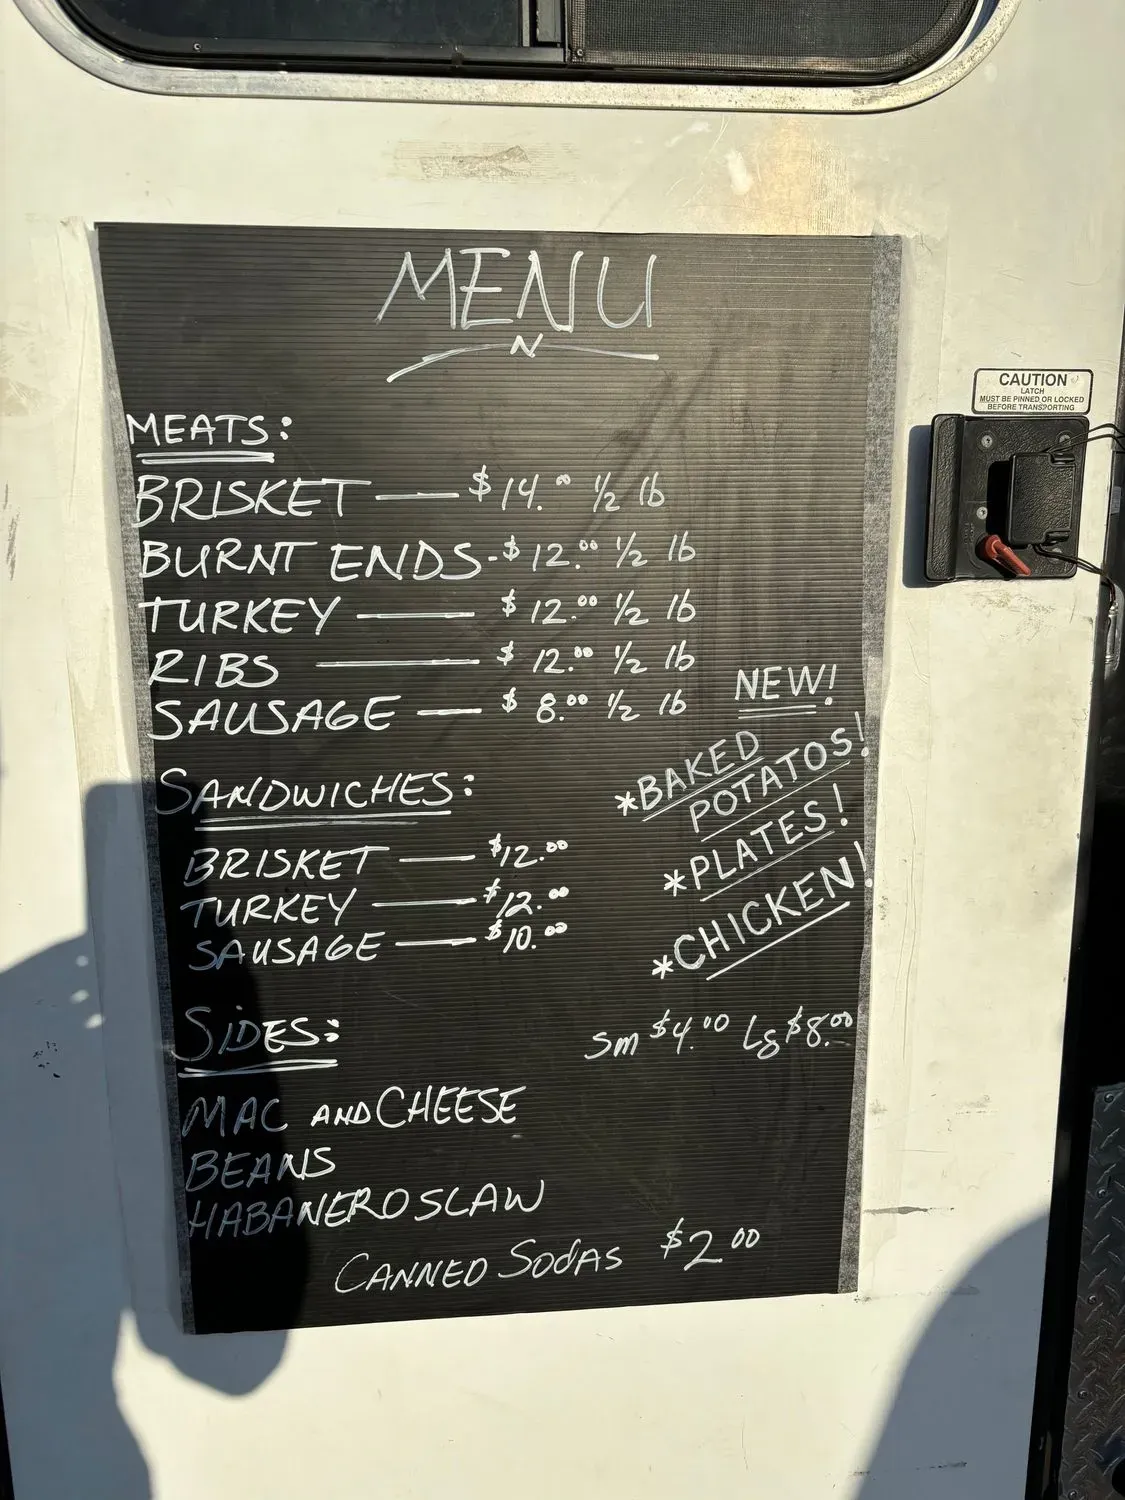 MENU
N
MEATS:
BRISKET — $14.00 1/2 lb
BURNT ENDS - $12.00 1/2 lb
TURKEY — $12.00 1/2 lb
RIBS — $12.00 1/2 lb
SAUSAGE — $8.00 1/2 lb
NEW!
*BAKED
POTATOS!
*PLATES!
*CHICKEN!
SANDWICHES:
BRISKET — $12.00
TURKEY — $12.00
SAUSAGE — $10.00
SIDES: Sm $4.00 Lg $8.00
MAC AND CHEESE
BEANS
HABANERO SLAW
CANNED SODAS $2.00
CAUTION
LATCH
MUST BE PINNED OR LOCKED
BEFORE TRANSPORTING